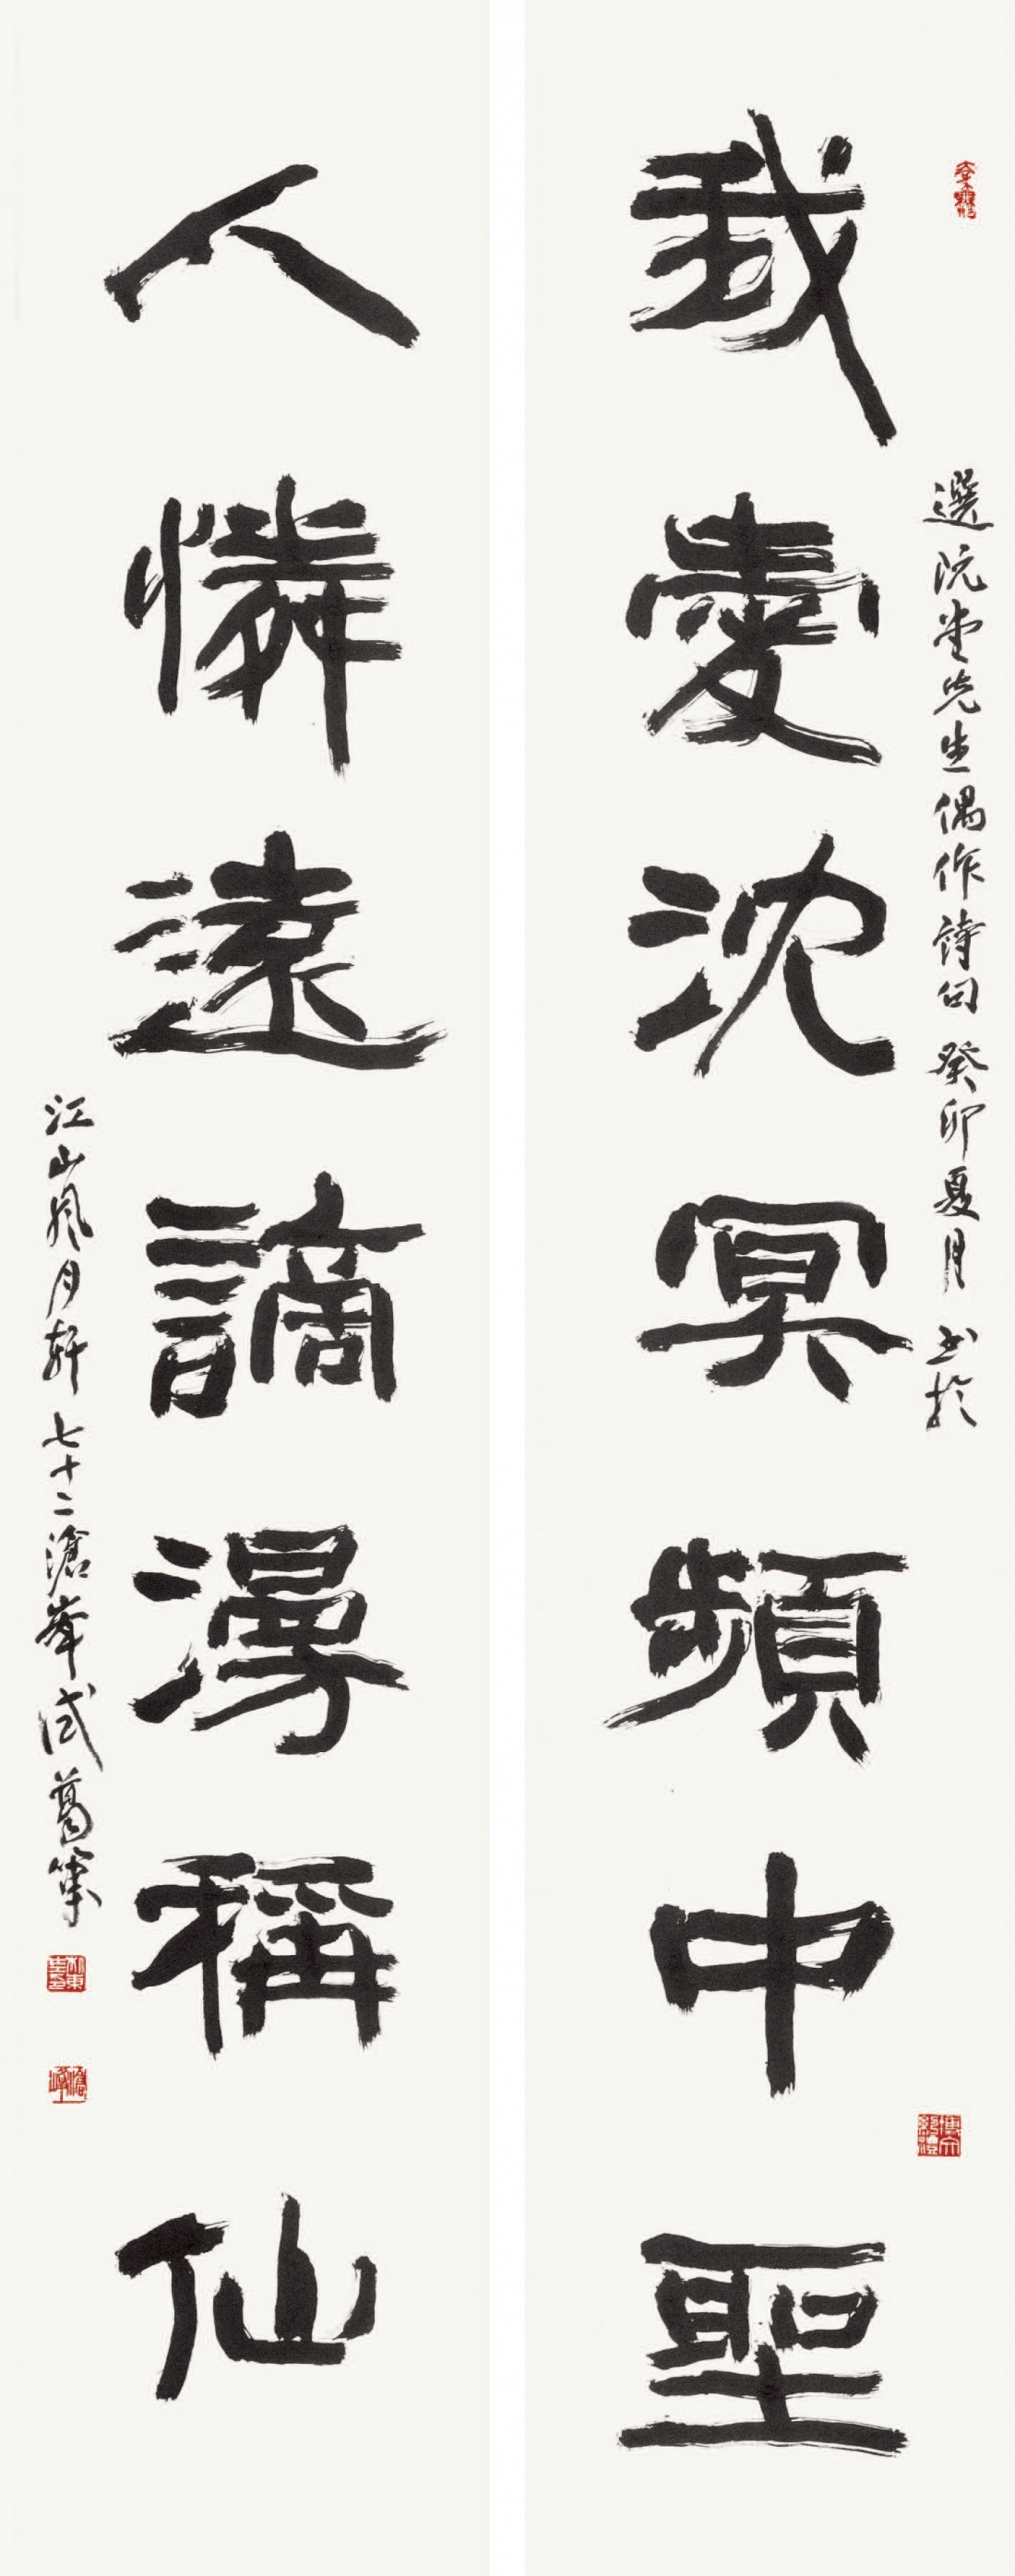 我愛沈冥頻中聖
選阮堂先生偶作詩句 癸卯夏月 書於
人憐遠謫漫稱仙
江山風月軒 七十二滄峯 葛筆